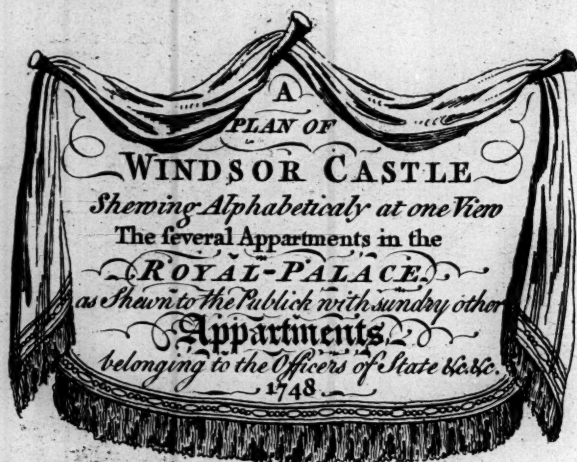 A
PLAN OF
WINDSOR CASTLE
Shewing Alphabeticaly at one View
The ſeveral Appartments in the
ROYAL-PALACE
as Shewn to the Publick with sundry other
Appartments,
belonging to the Officers of State &c.&c.
1748.